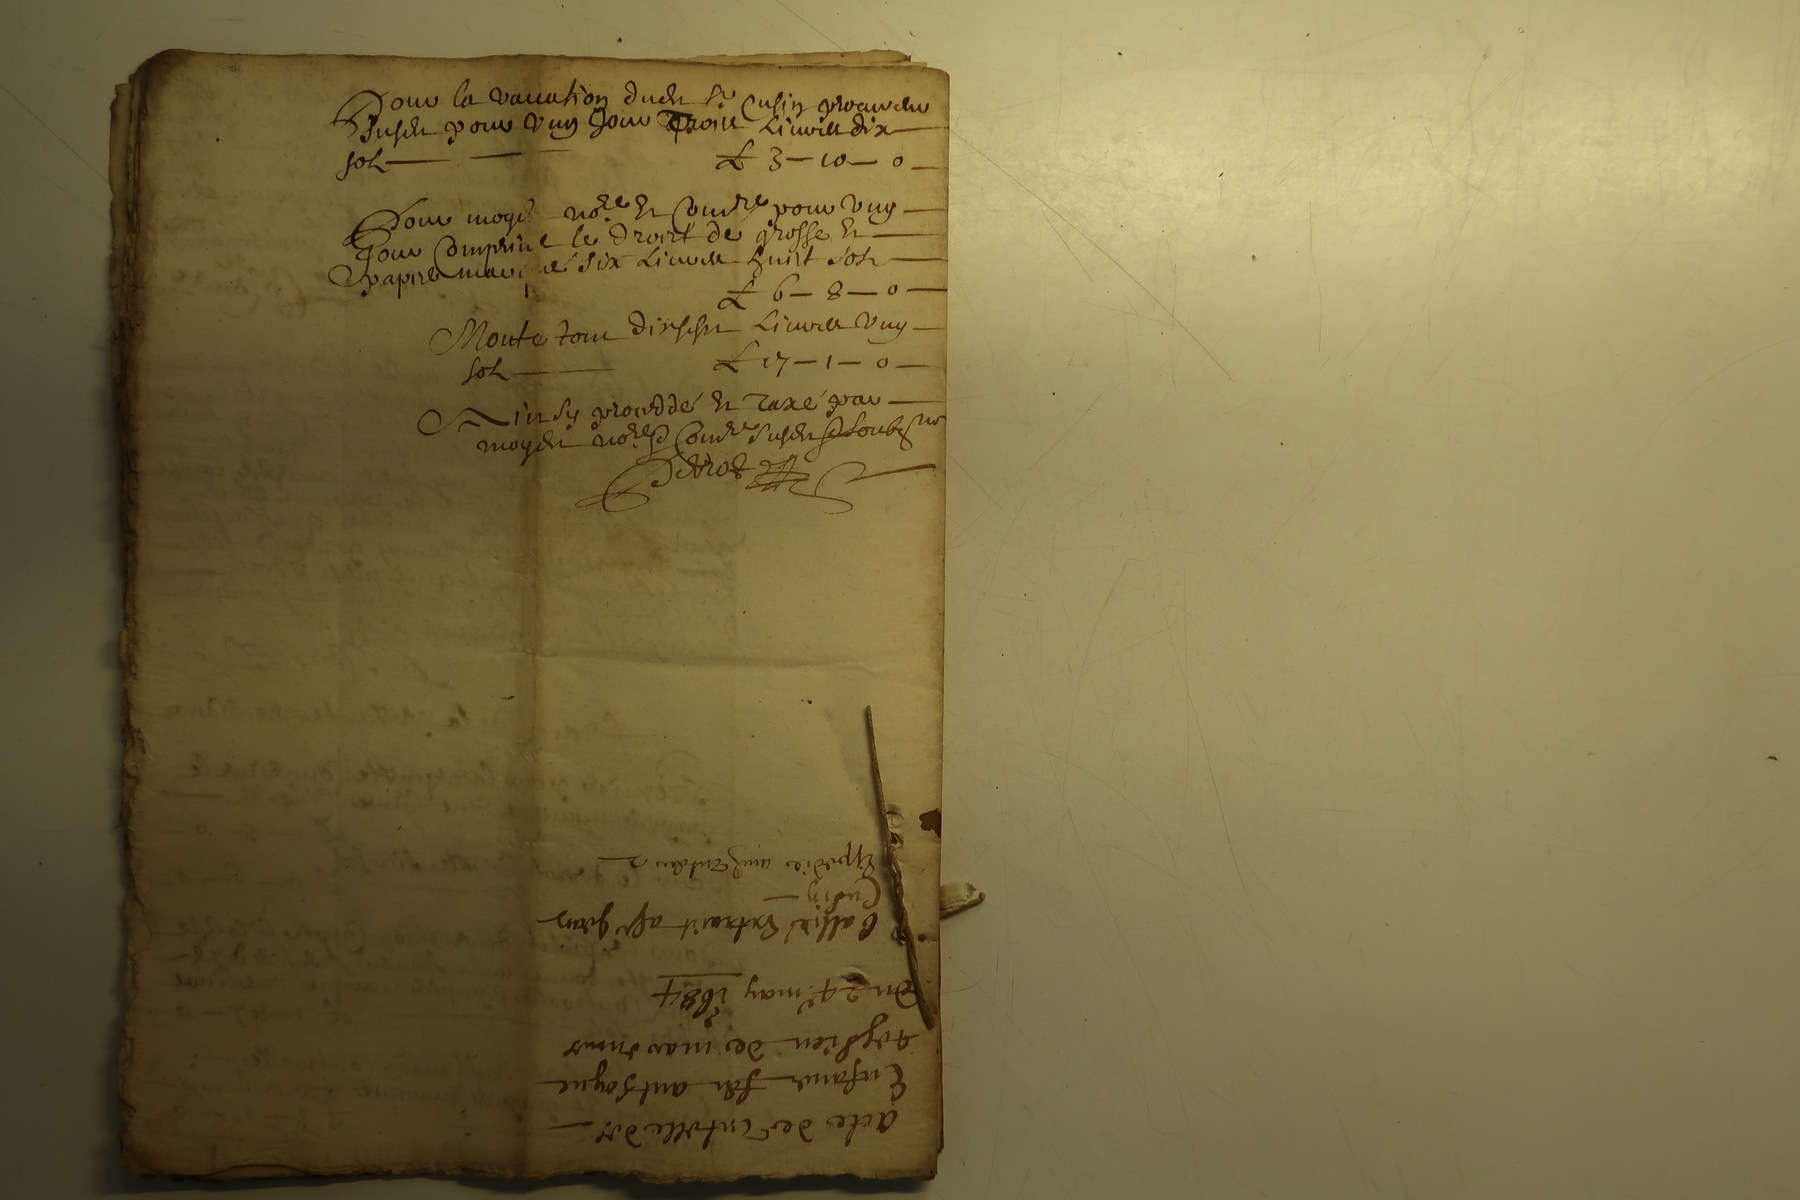 Pour la vaccation dudit Sr Cusin procureur
susdit pour ung jour trois livres dix
sols £ 3 - 10 - 0
Pour moydit nore et Comre pour ung
jour comprins le droict de grosse et
papier marqué six livres huict sols
£ 6 - 8 - 0
Monte tout dixsept livres ung
sols £ 17 - 1 - 0
Ainsy procedde et taxé par
moydit nore Comre susdit soubsne
acte de tutelle des
Enfans feu anthoyne
du 24e may 1684
Extrait
Cusin